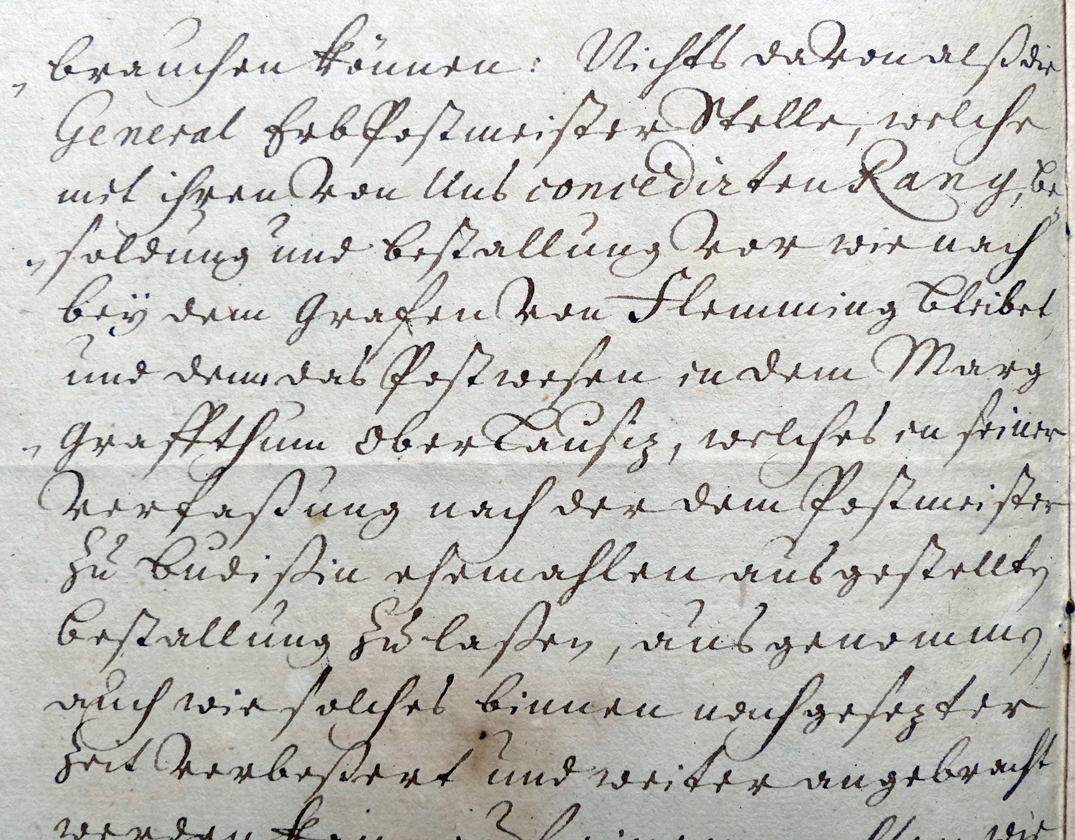 brauchen können: Nichts davon als die
General Erb Postmeister Stelle, welche
mit ihren von Uns concedirten Rang, be
soldung und bestallung vor wie nach
beÿ dem Grafen von Flemming bleibet,
und denn das Postwesen in dem Marg
Graffthum Ober Lausiz, welches in seiner
Verfaßung nach der dem Postmeister
zu Budißin ehemahlen ausgestellten
bestallung zu laßen, ausgenommen,
auch wie solches binnen nachgesezter
Zeit verbeßert und weiter angebracht
werden kan